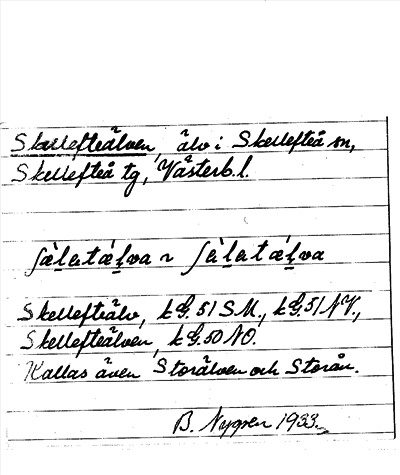 Skellefteälven, älv i Skellefteå sn,
Skellefteå tg, Västerb. l.
ʃæ̀latǽlva ~ ʃæ̀latǽlva
Skellefteälv, kG. 51 SM., kG. 51 NV.,
Skellefteälven, kG. 50 NO.
Kallas även Storälven och Storån.
B. Nygren 1933.